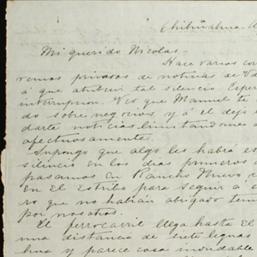 Chihuahua A
Mi querido Nicolas.
Hace varios cor
remos privados de noticias de Vd
á que atribuir tal silencio. Esper
interrupcion. Veo que Manuel te
do sobre negocios, y á él dejo e
darte noticias, limitandome a
afectuosamente.
Supongo que algo les habrá es
silencio en los dias primeros
pasamos en Rancho Nuevo
en El Estribo para seguir a
ro que no habian abrigado tem
por nosotros.
El ferrocarril llega hasta El
una distancia de siete leguas
hua y parece cosa inevitable